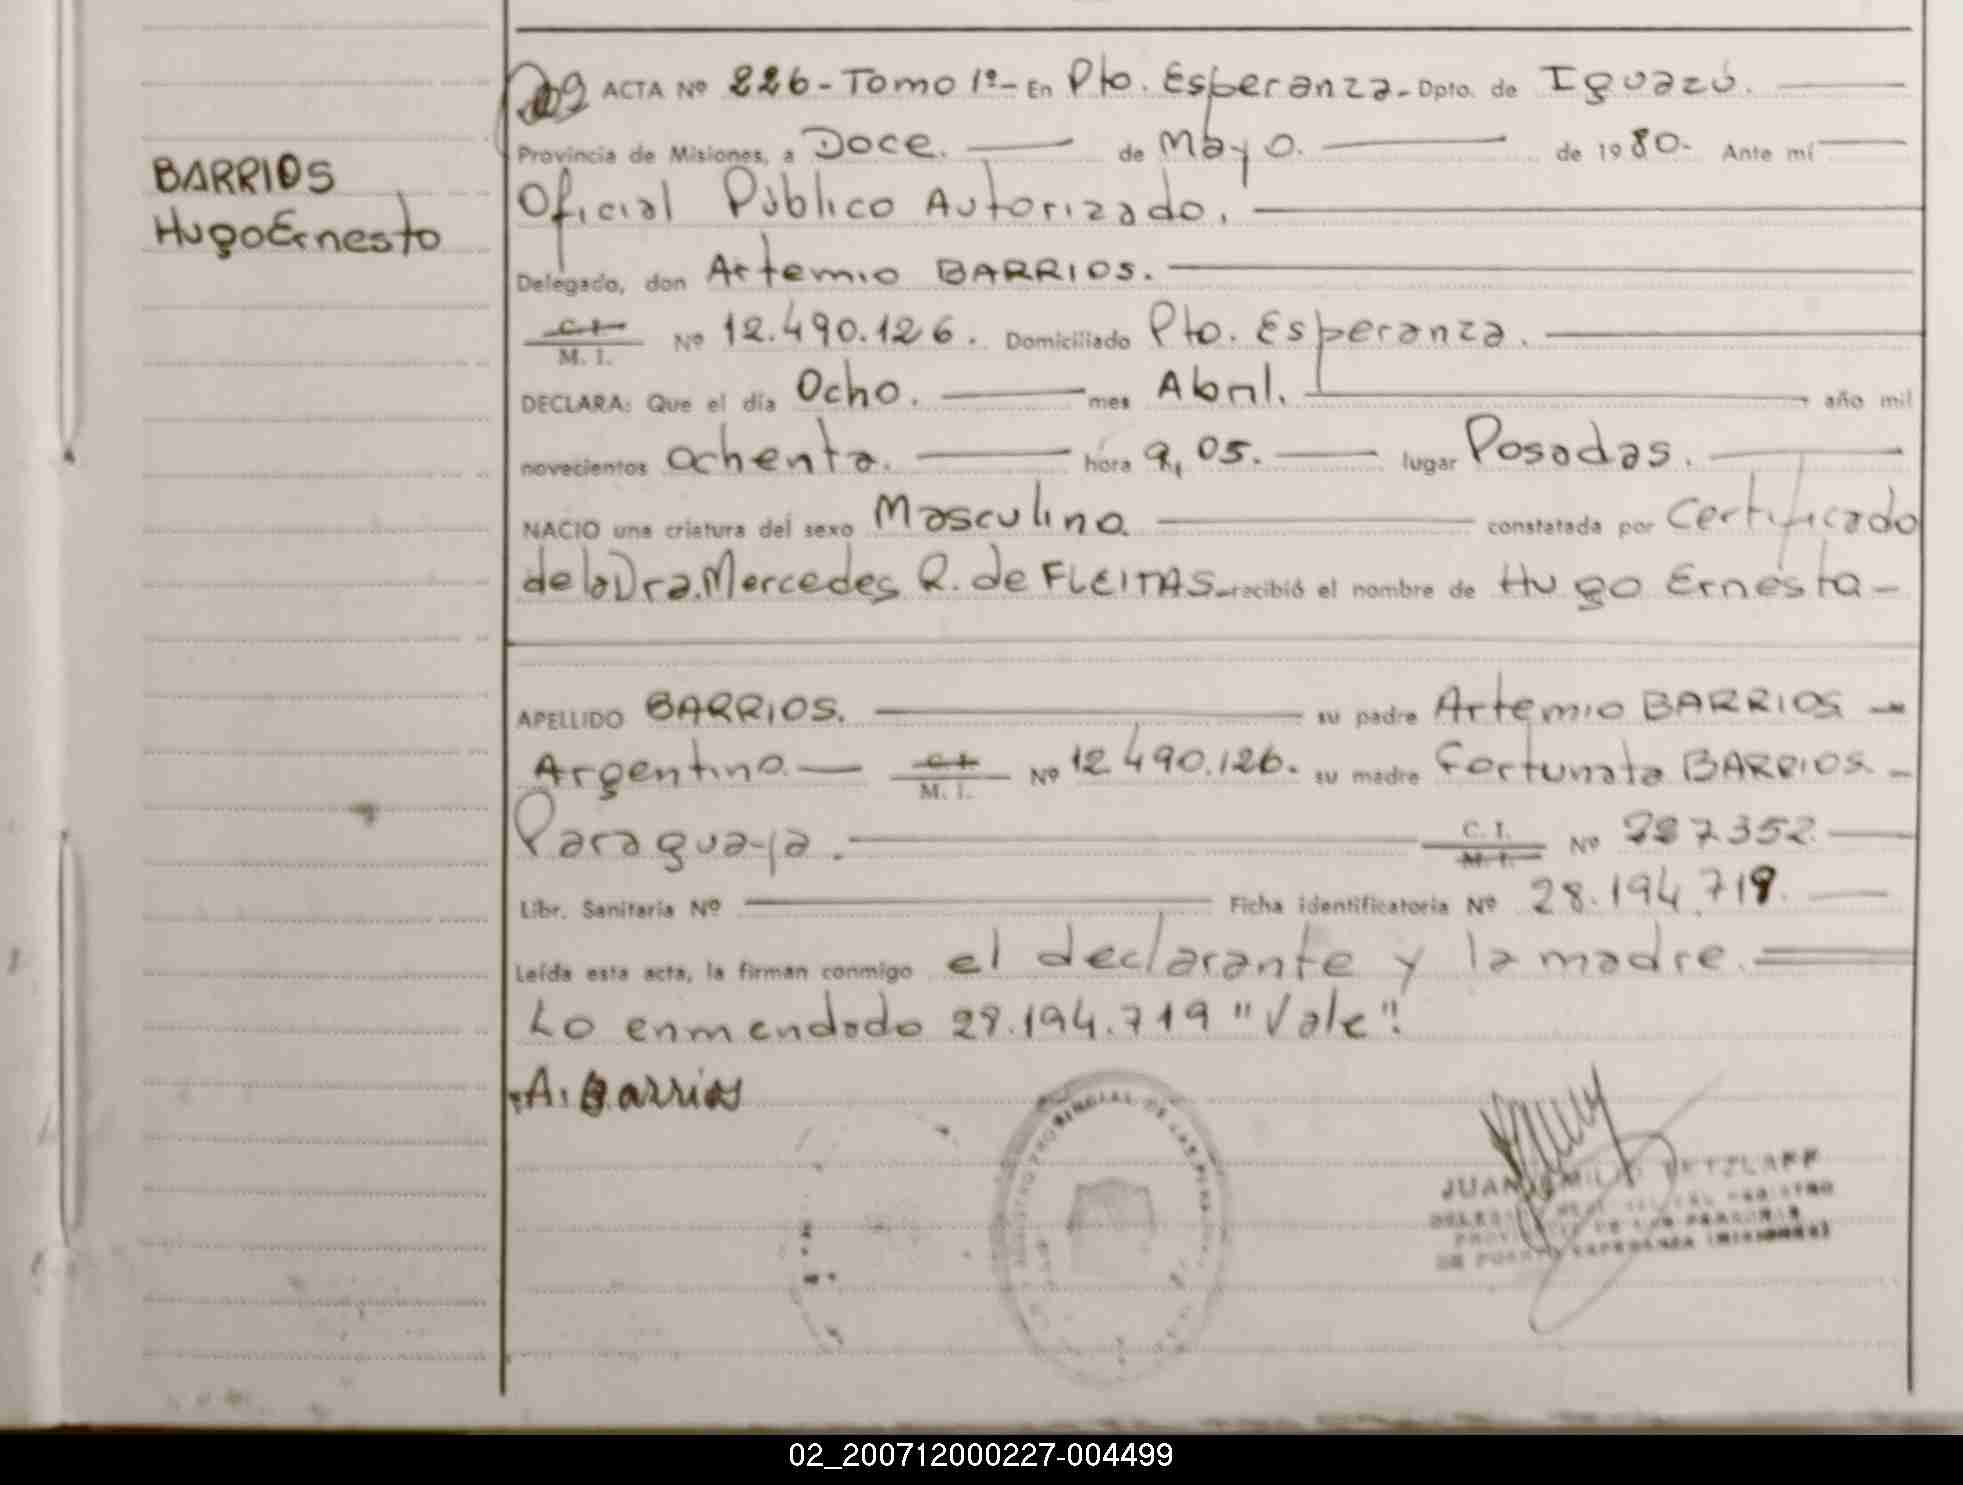 BARRIOS
Hugo Ernesto
ACTA Nº 226 - Tomo 1º - En Pto. Esperanza - Dpto. de Iguazú.
Provincia de Misiones, a Doce. de Mayo. de 1980. Ante mí
Oficial Público Autorizado.
Delegado, don Artemio BARRIOS.
C. I.
M. I. Nº 12.490.126. Domiciliado Pto. Esperanza.
DECLARA: Que el día Ocho. mes Abril. año mil
novecientos ochenta. hora 9,05. lugar Posadas.
NACIO una criatura del sexo Masculino constatada por Certificado
de la Dra. Mercedes R. de FLEITAS - recibió el nombre de Hugo Ernesto -
APELLIDO BARRIOS. su padre Artemio BARRIOS -
Argentino - C. I.
M. I. Nº 12.490.126. su madre Fortunata BARRIOS -
Paraguaya. C. I.
M. I. Nº 227.352.
Libr. Sanitaria Nº Ficha identificatoria Nº 28.194.719.
Leída esta acta, la firman conmigo el declarante y la madre.
Lo enmendado 28.194.719 "Vale".
A. Barrios
JUAN EMILIO RETZLAFF
02_200712000227-004499